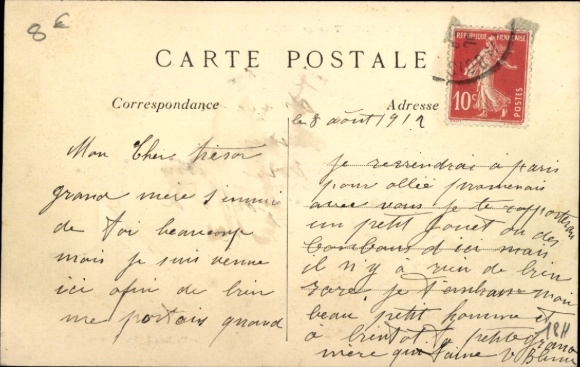 8 €
CARTE POSTALE
RÉPUBLIQUE FRANÇAISE
10c
POSTES
Correspondance
Adresse
le 8 août 1912
Mon Cher trésor
grand mère s'ennui
de toi beaucoup
mais je suis venue
ici afin de bien
me portais quand
je reviendrai a Paris
pour allée promenais
avec vous je te rapporterai
un petit jouet ou des
bonbons d'ici mais
il n'y à rien de bien
rare. je t'embrasse mon
beau petit homme et
à bientôt ta petite grand
mère qui t'aime V